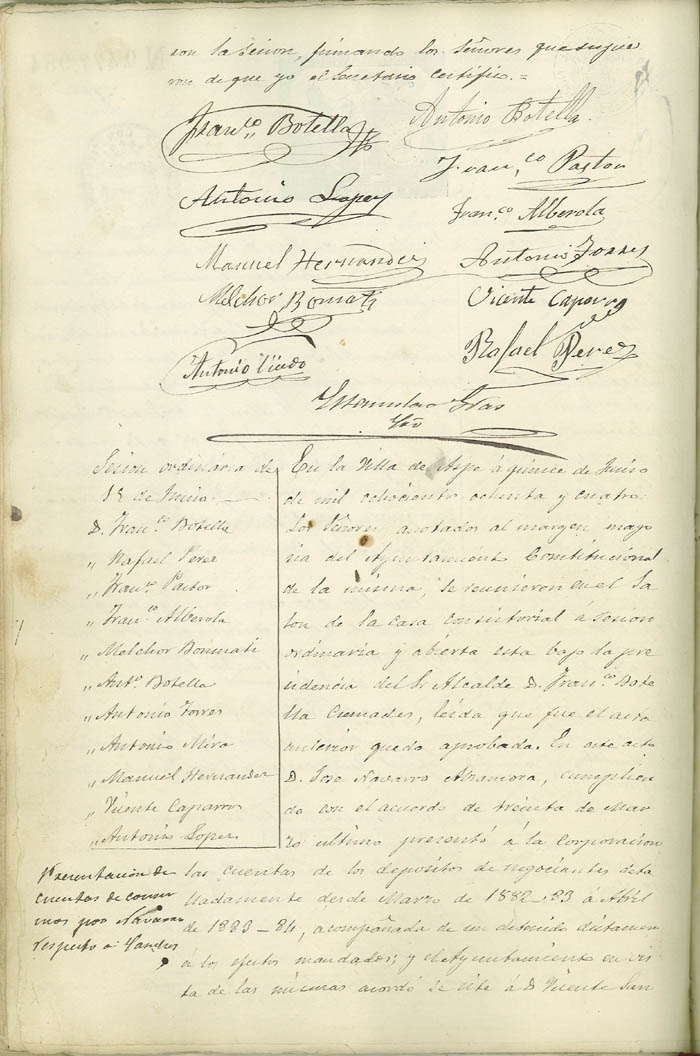 con la sesion, firmando los Señores que supie
ron de que yo el Secretario certifico. =
Fran.co Botella
Antonio Botella.
Fran.co Pastor
Antonio Lopez
Fran.co Alberola
Manuel Hernandez
Antonio Torres
Melchor Bonmati
Vicente Caparros
Rafael Perez
Antonio Vicedo
Estanislao Gras
Srio
Sesion ordinaria de
15 de Junio.
D. Fran.co Botella
„ Rafael Perez
„ Fran.co Pastor
„ Fran.co Alberola
„ Melchor Bonmati
„ Ant.o Botella
„ Antonio Torres
„ Antonio Miro
„ Manuel Hernandez
„ Vicente Caparros
„ Antonio Lopez
Presentación de
cuentas de consu
mos por Navarro
respecto a
En la Villa de Aspe á quince de Junio
de mil ochocientos ochenta y cuatro.
Los Señores anotados al margen mayo
ria del Ayuntamiento Constitucional
de la misma, se reunieron en el Sa
lon de la casa consistorial á sesion
ordinaria y abierta esta bajo la pre
sidencia del Sr Alcalde D. Fran.co Bote
lla Cremades, leida que fue el acta
anterior quedo aprobada. En este acto
D. Jose Navarro Alzamora, cumplien
do con el acuerdo de treinta de Mar
zo ultimo presentó á la Corporacion
las cuentas de los depositos de negociantes deta
lladamente desde Marzo de 1882-83 á Abril
de 1883-84, acompañada de un detenido dictamen
á los efectos mandados; y el Ayuntamiento en vis
ta de las mismas acordó se cite á D. Vicente San